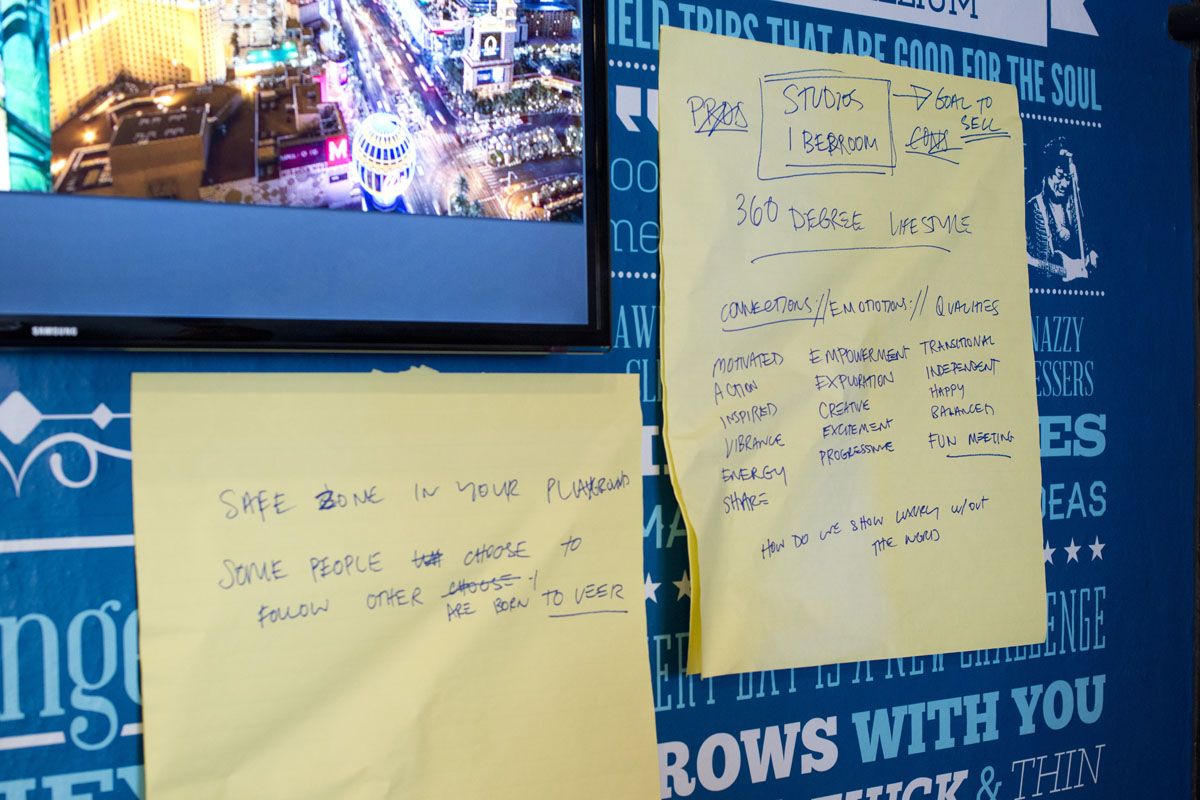 M
SAMSUNG
FIELD TRIPS THAT ARE GOOD FOR THE SOUL
PROS
STUDIOS
1 BEDROOM
GOAL TO
SELL
CONS
360 DEGREE LIFESTYLE
CONNECTIONS:// EMOTIOTIONS:// QUALITIES
MOTIVATED EMPOWERMENT TRANSITIONAL
ACTION EXPLORATION INDEPENDENT
INSPIRED CREATIVE HAPPY
VIBRANCE EXCITEMENT BALANCED
ENERGY PROGRESSIVE FUN MEETING
SHARE
HOW DO WE SHOW LUXURY W/OUT
THE WORD
SAFE ZONE IN YOUR PLAYGROUND
SOME PEOPLE CHOOSE TO
FOLLOW OTHER CHOOSE
ARE BORN TO VEER
NAZZY
ESSERS
IDEAS
EVERY DAY IS A NEW CHALLENGE
ROWS WITH YOU
& THIN